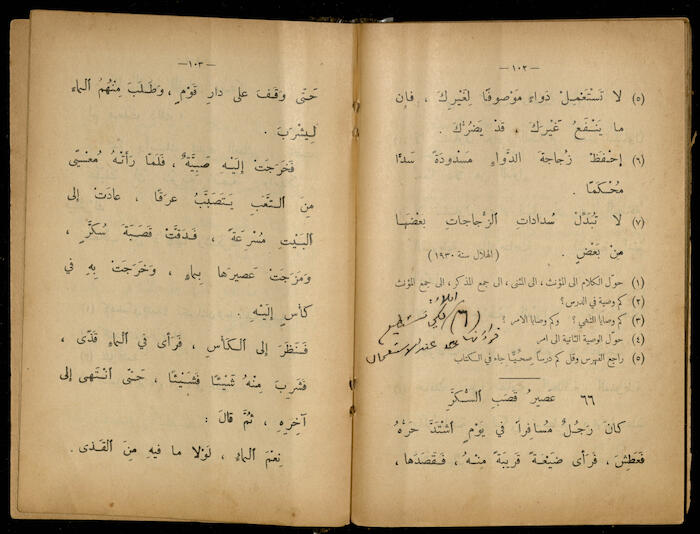 — ١٠٢ —
(٥) لا تَسْتَعْمِلْ دَواءً مَوْصوفًا لِغَيْرِكَ ، فإن
ما يَنْفَعُ غَيْرَكَ ، قَدْ يَضُرُّكَ .
(٦) إِحْفَظْ زُجاجَةَ الدَّواءِ مَسْدودَةً سَدًّا
مُحْكَمًا .
(٧) لا تُبَدِّلْ سُداداتِ الزُّجاجاتِ بَعْضَها
مِنْ بَعْضٍ . (الهلال سنة ١٩٣٠)
(١) حوّل الكلام الى المؤنث ، الى المثنى ، الى جمع المذكر ، الى جمع المؤنث
(٢) كم وصية في الدرس ؟
(٣) كم وصايا النهي ؟ وكم وصايا الامر ؟
(٤) حوّل الوصية الثانية الى امر
(٥) راجع الفهرس وقل كم درسًا صحيًّا جاء في الكتاب
(٦) لكي
٦٦ عصيرُ قَصَبِ السُّكَّرِ
كانَ رَجُلٌ مُسافِراً في يَوْمٍ اشْتَدَّ حَرُّهُ
فَعَطِشَ ، فَرَأى ضَيْعَةً قَريبَةً مِنْهُ ، فَقَصَدَها ،
— ١٠٣ —
حَتّى وَقَفَ على دارِ قَوْمٍ ، وَطَلَبَ مِنْهُمُ الماءَ
لِيَشْرَبَ .
فَخَرَجَتْ إِلَيْهِ صَبِيَّةٌ ، فَلَمّا رَأَتْهُ
مِنَ التَّعَبِ يَتَصَبَّبُ عَرَقًا ، عادَتْ إلى
البَيْتِ مُسْرِعَةً ، فَدَقَّتْ قَصَبَةَ سُكَّرٍ ،
وَمَزَجَتْ عَصيرَها بِماءٍ ، وَخَرَجَتْ بِهِ في
كأسٍ إِلَيْهِ .
فَنَظَرَ إلى الكَأْسِ ، فَرَأى في الماءِ قَذًى ،
فَشَرِبَ مِنْهُ شَيْئًا فَشَيْئًا ، حَتّى انْتَهى إلى
آخِرِهِ ، ثُمَّ قالَ :
نِعْمَ الماءُ ، لَوْلا ما فيهِ مِنَ القَذى .